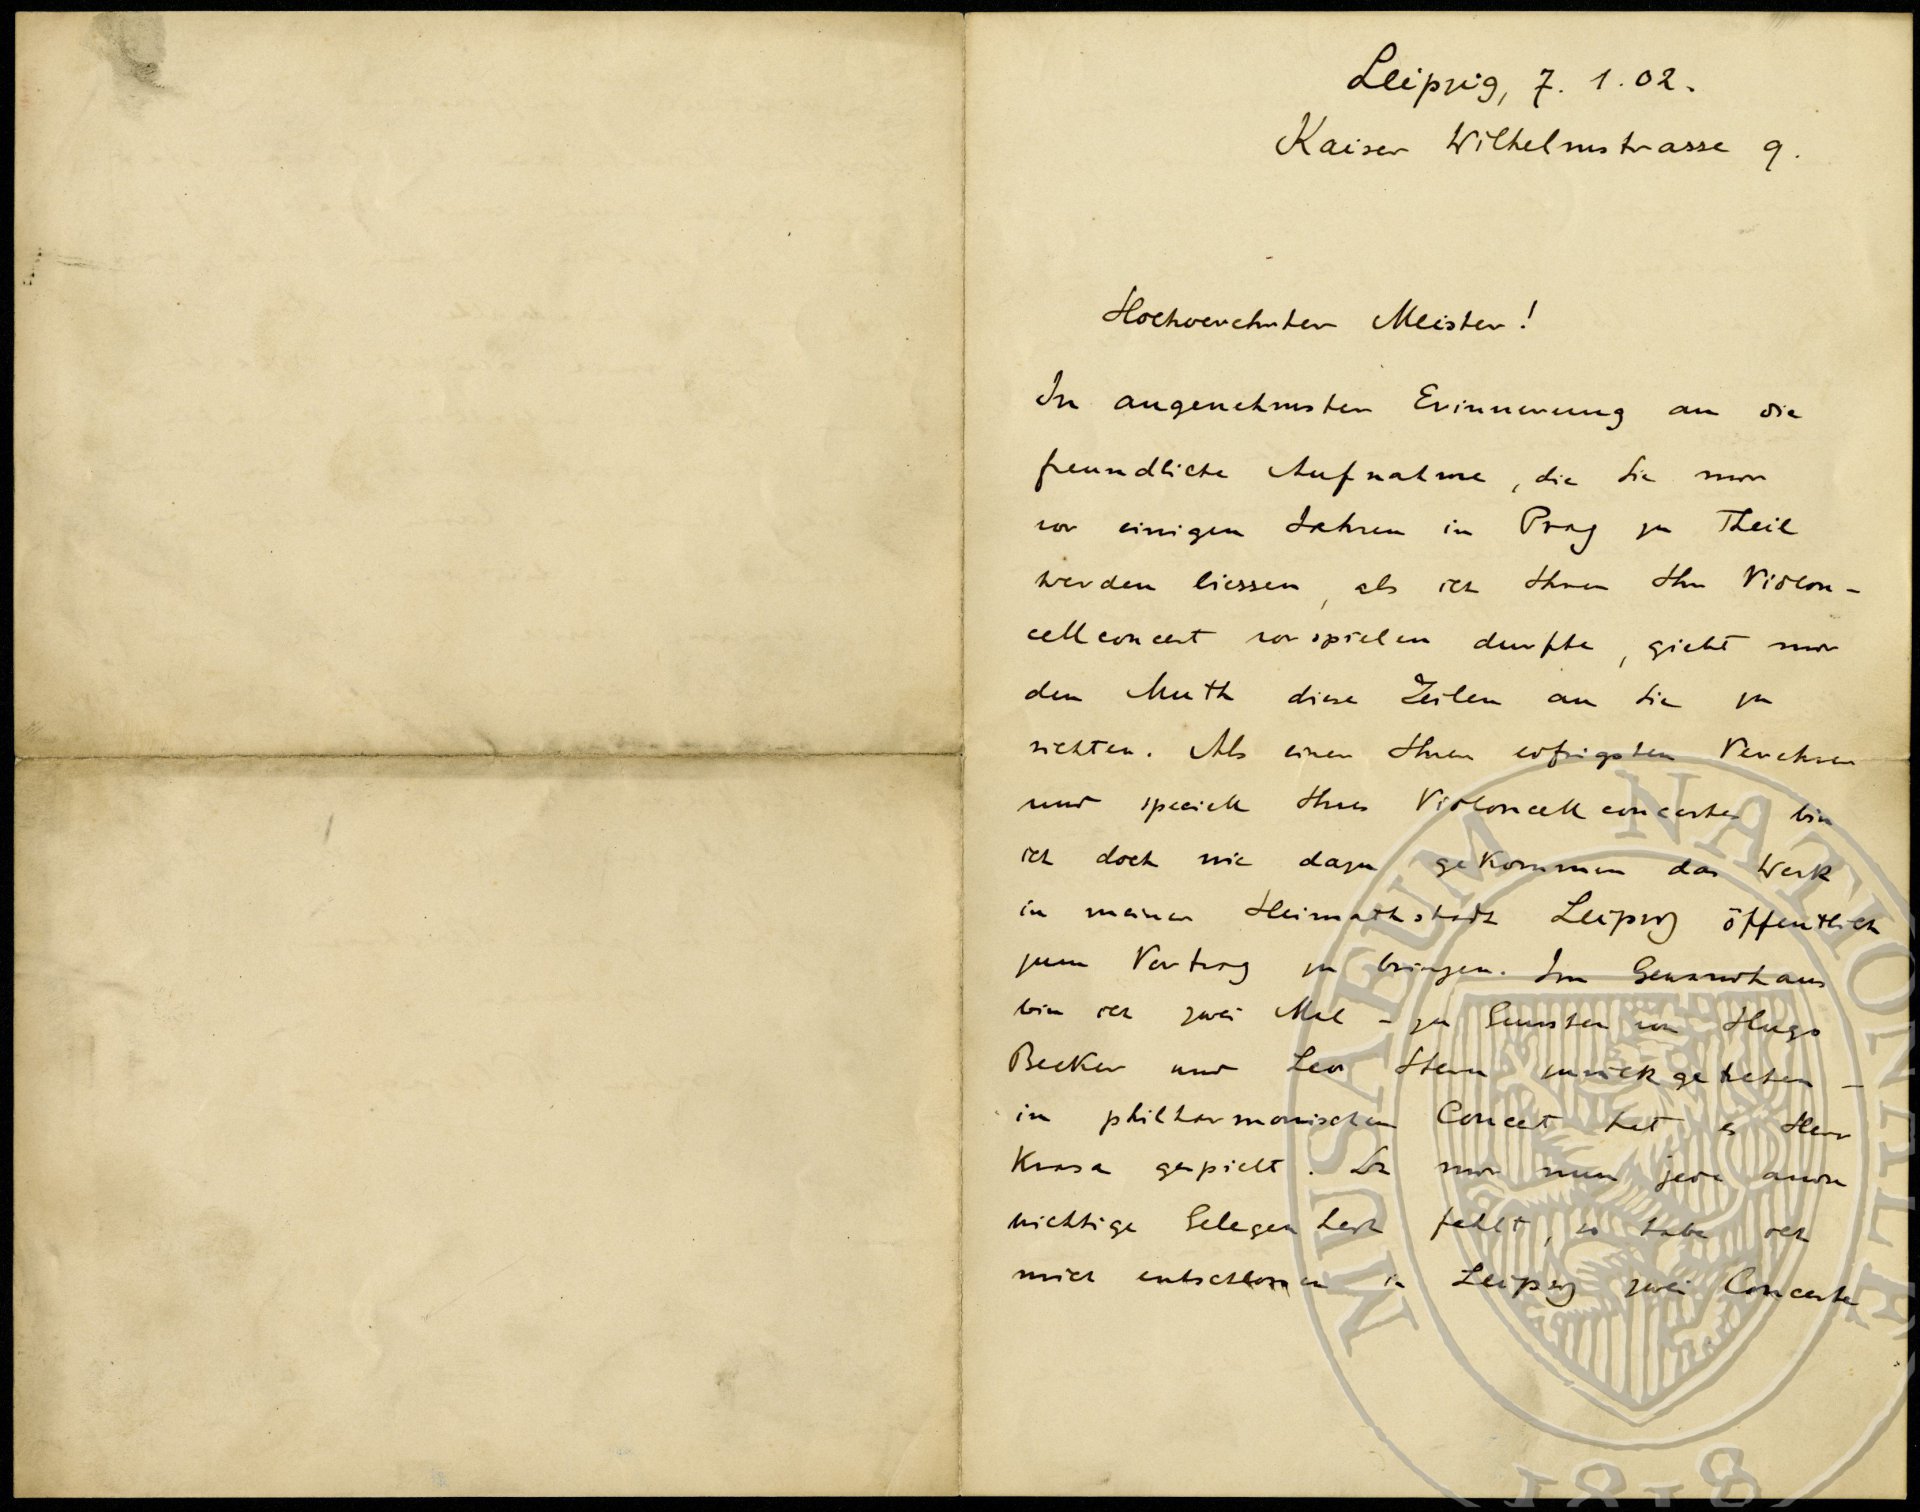 Leipzig, 7. 1. 02.
Kaiser Wilhelmstrasse 9.
Hochverehrter Meister!
In angenehmster Erinnerung an die
freundliche Aufnahme, die Sie mir
vor einigen Jahren in Prag zu Theil
werden liessen, als ich Ihnen Ihr Violon-
cellconcert vorspielen durfte, giebt mir
den Muth diese Zeilen an Sie zu
richten. Als einer Ihrer eifrigsten Verehrer
und speciell Ihres Violoncellconcertes bin
ich doch nie dazu gekommen das Werk
in meiner Heimathstadt Leipzig öffentlich
zum Vortrag zu bringen. Im Gewandhaus
bin ich zwei Mal – zu Gunsten von Hugo
Becker und Leo Stern zurückgetreten –
in philharmonischen Concert hat es Herr
Krasa gespielt. Da mir nun jede andre
wichtige Gelegenheit fehlt, so habe ich
mich entschlossen in Leipzig zwei Concerte
MUSAEUM NATIONALE
1818